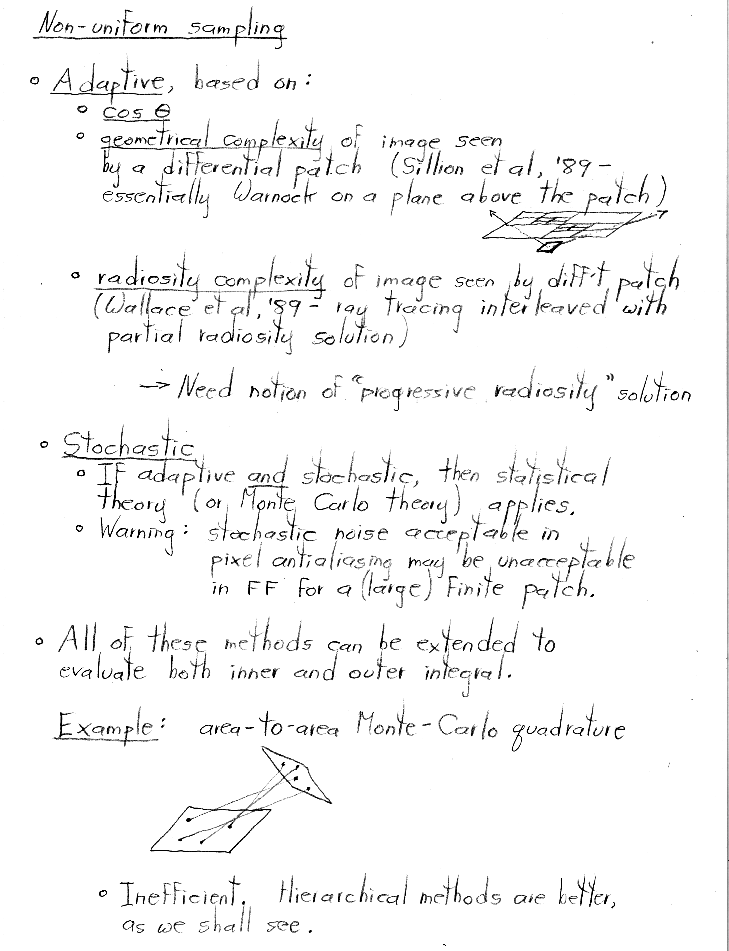 Non-uniform sampling
Adaptive, based on:
cos θ
geometrical complexity of image seen
by a differential patch (Sillion et al, '89 -
essentially Warnock on a plane above the patch)
radiosity complexity of image seen by diff't patch
(Wallace et al, '89 - ray tracing interleaved with
partial radiosity solution)
→ Need notion of "progressive radiosity" solution
Stochastic
If adaptive and stochastic, then statistical
theory (or Monte Carlo theory) applies.
Warning: stochastic noise acceptable in
pixel antialiasing may be unacceptable
in FF for a (large) finite patch.
All of these methods can be extended to
evaluate both inner and outer integral.
Example: area-to-area Monte-Carlo quadrature
Inefficient. Hierarchical methods are better,
as we shall see.